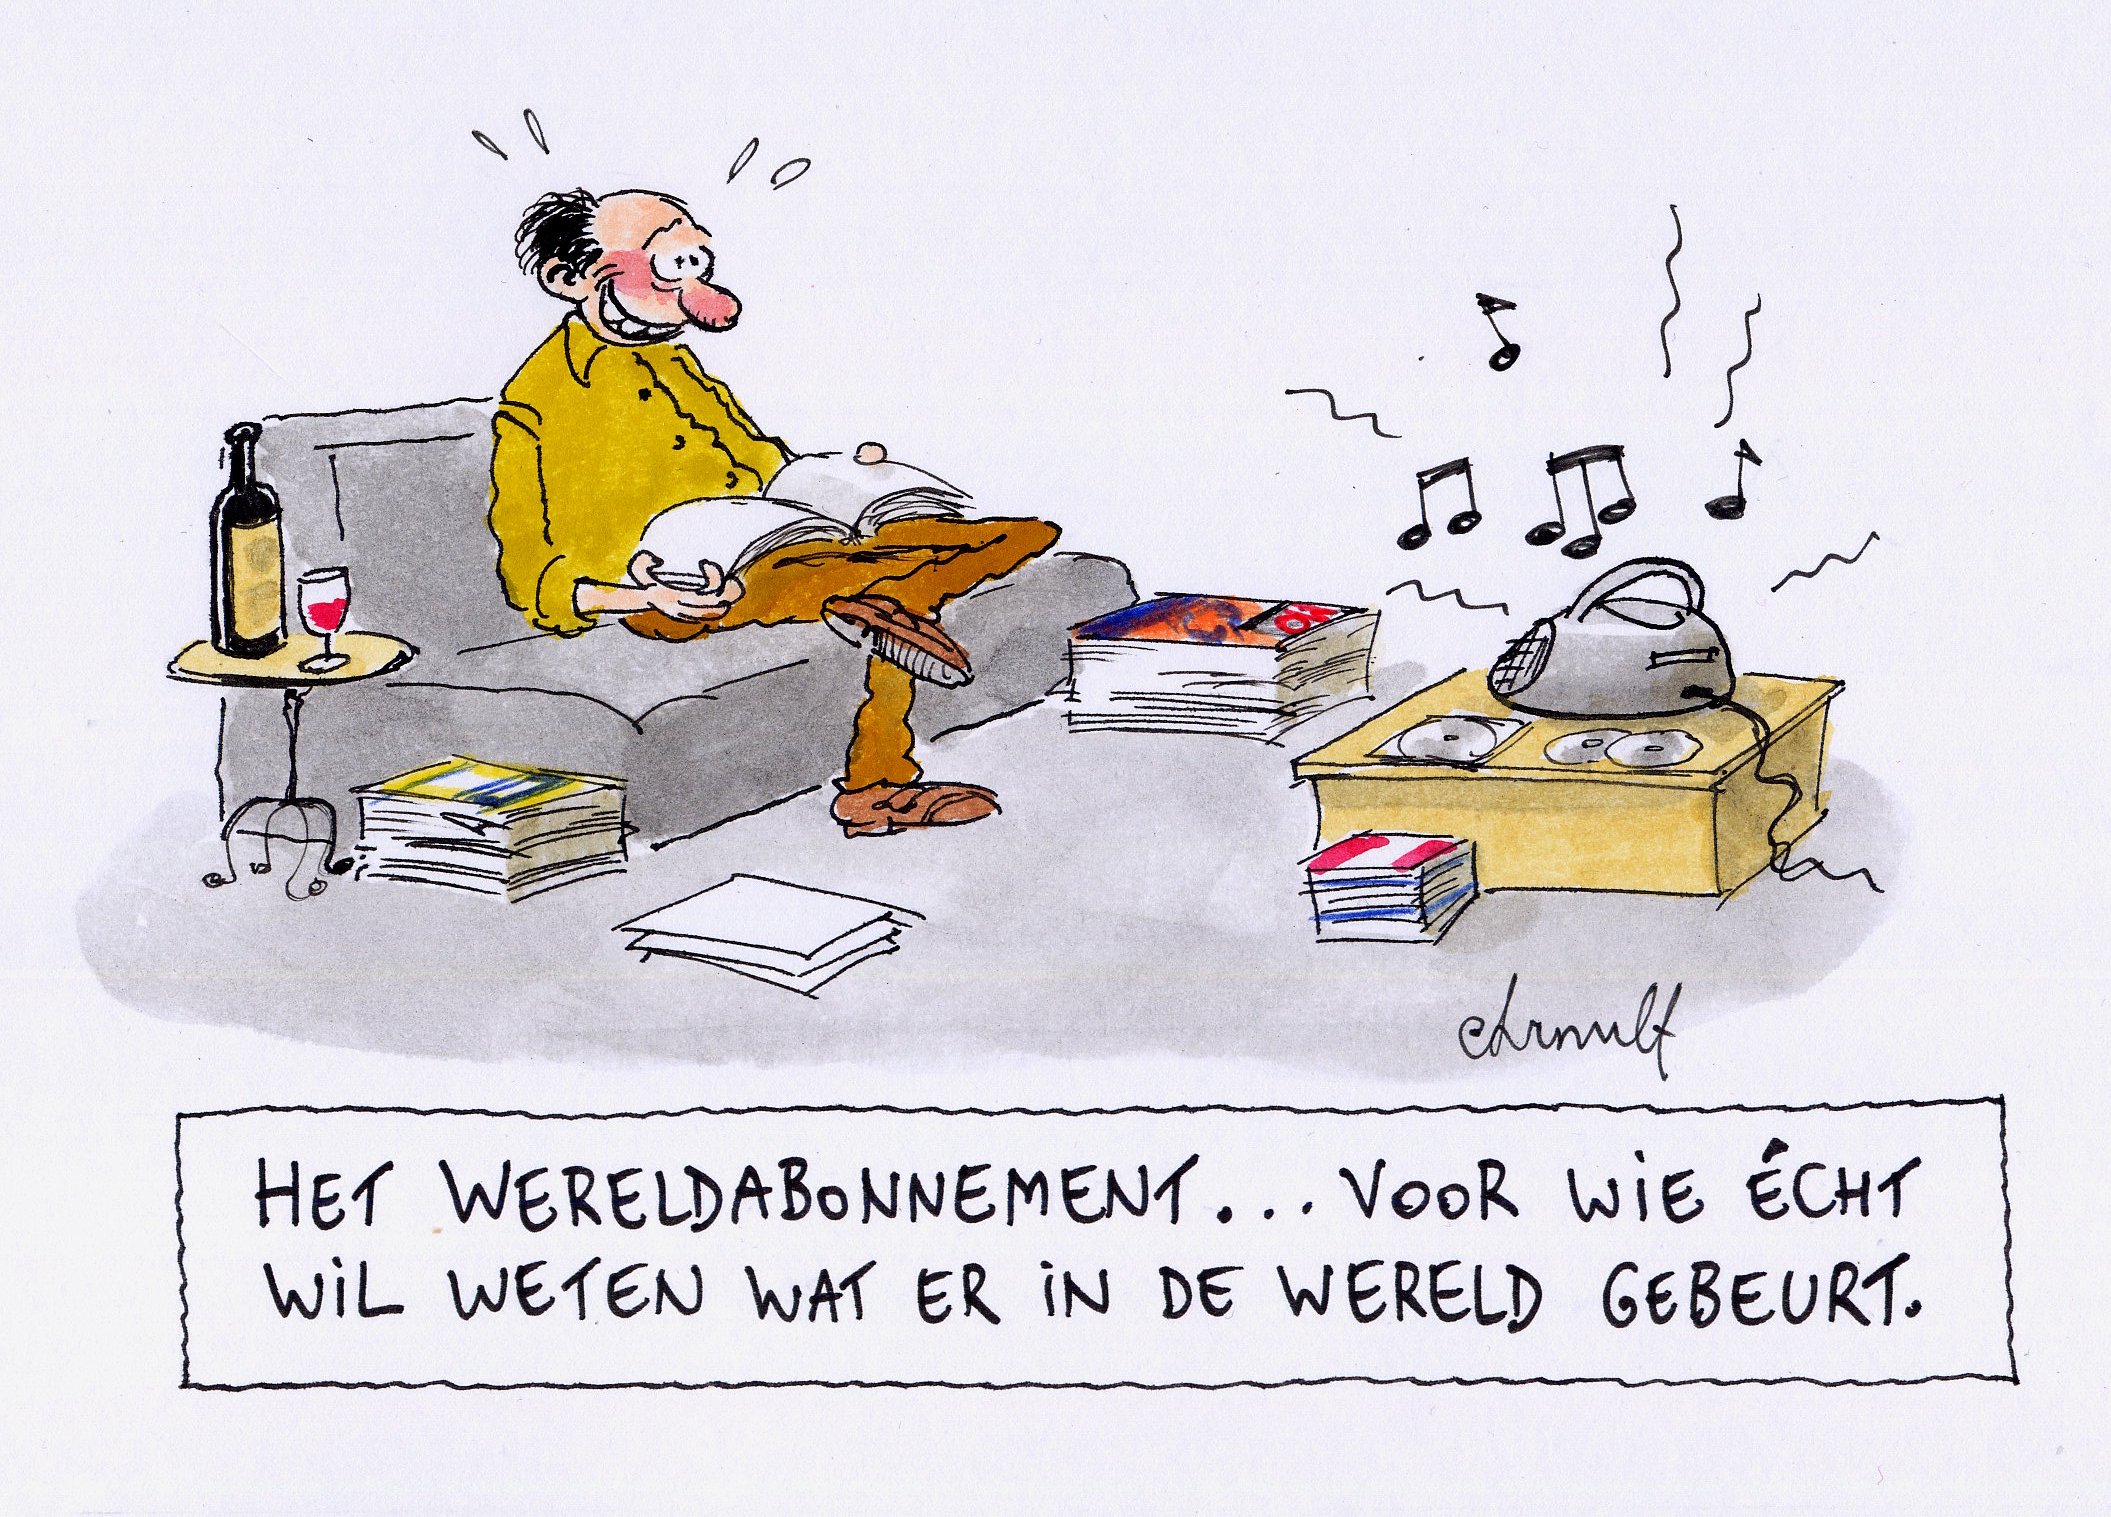 HET WERELDABONNEMENT... VOOR WIE ÉCHT
WIL WETEN WAT ER IN DE WERELD GEBEURT.